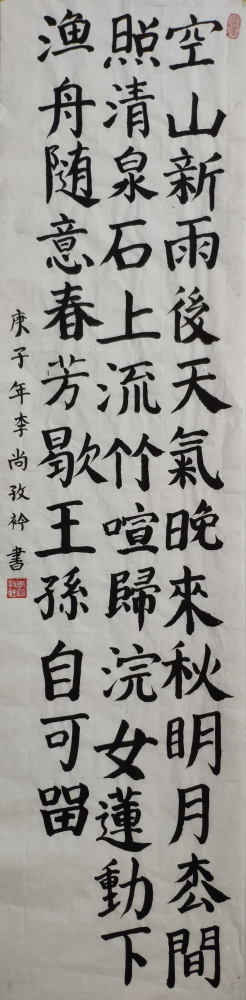 空山新雨後天氣晚來秋明月枩間
照清泉石上流竹喧歸浣女蓮動下
渔舟随意春芳歇王孫自可畱
庚子年李尚孜衿書